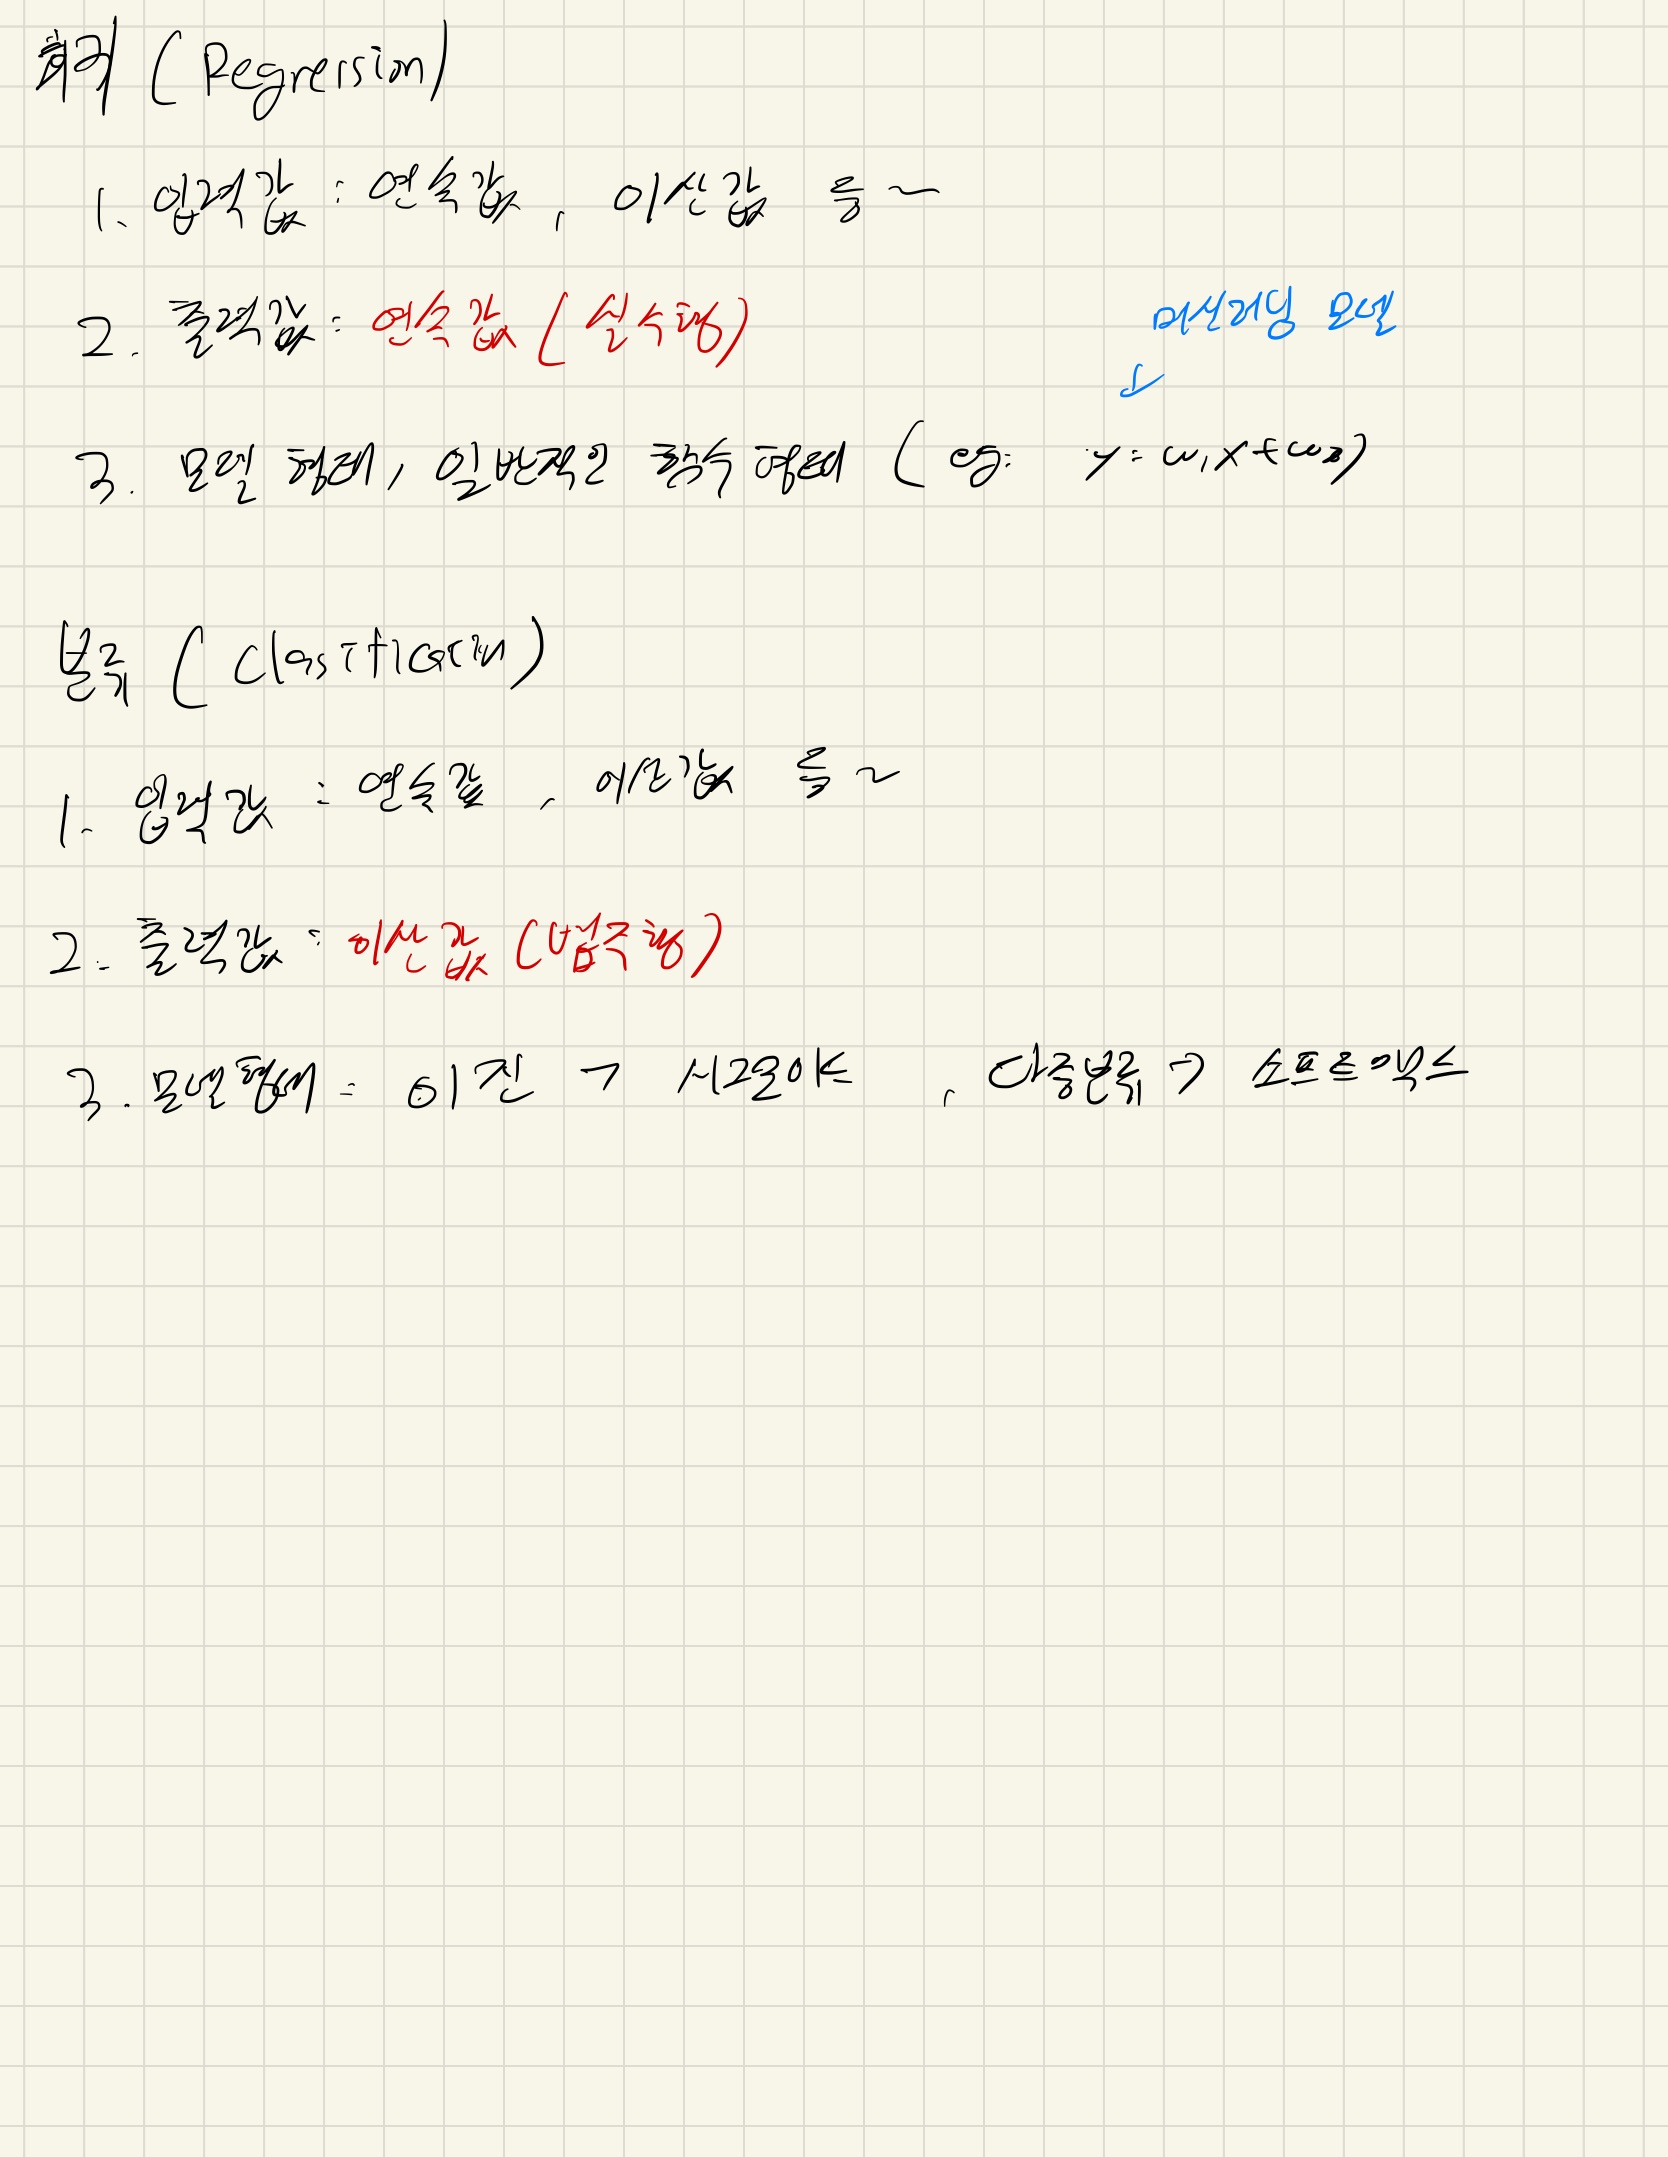 회귀 (Regression)
1. 입력값 : 연속값, 이산값 등~
2. 출력값 : 연속값 (실수형)
머신러닝 모델
↓
3. 모델 형태, 일반적인 함수 형태 (eg: y = w₁x + w₂)
분류 (Classification)
1. 입력값 : 연속값, 이산값 등~
2. 출력값 : 이산값 (범주형)
3. 모델형태 = 이진 → 시그모이드, 다중분류 → 소프트맥스